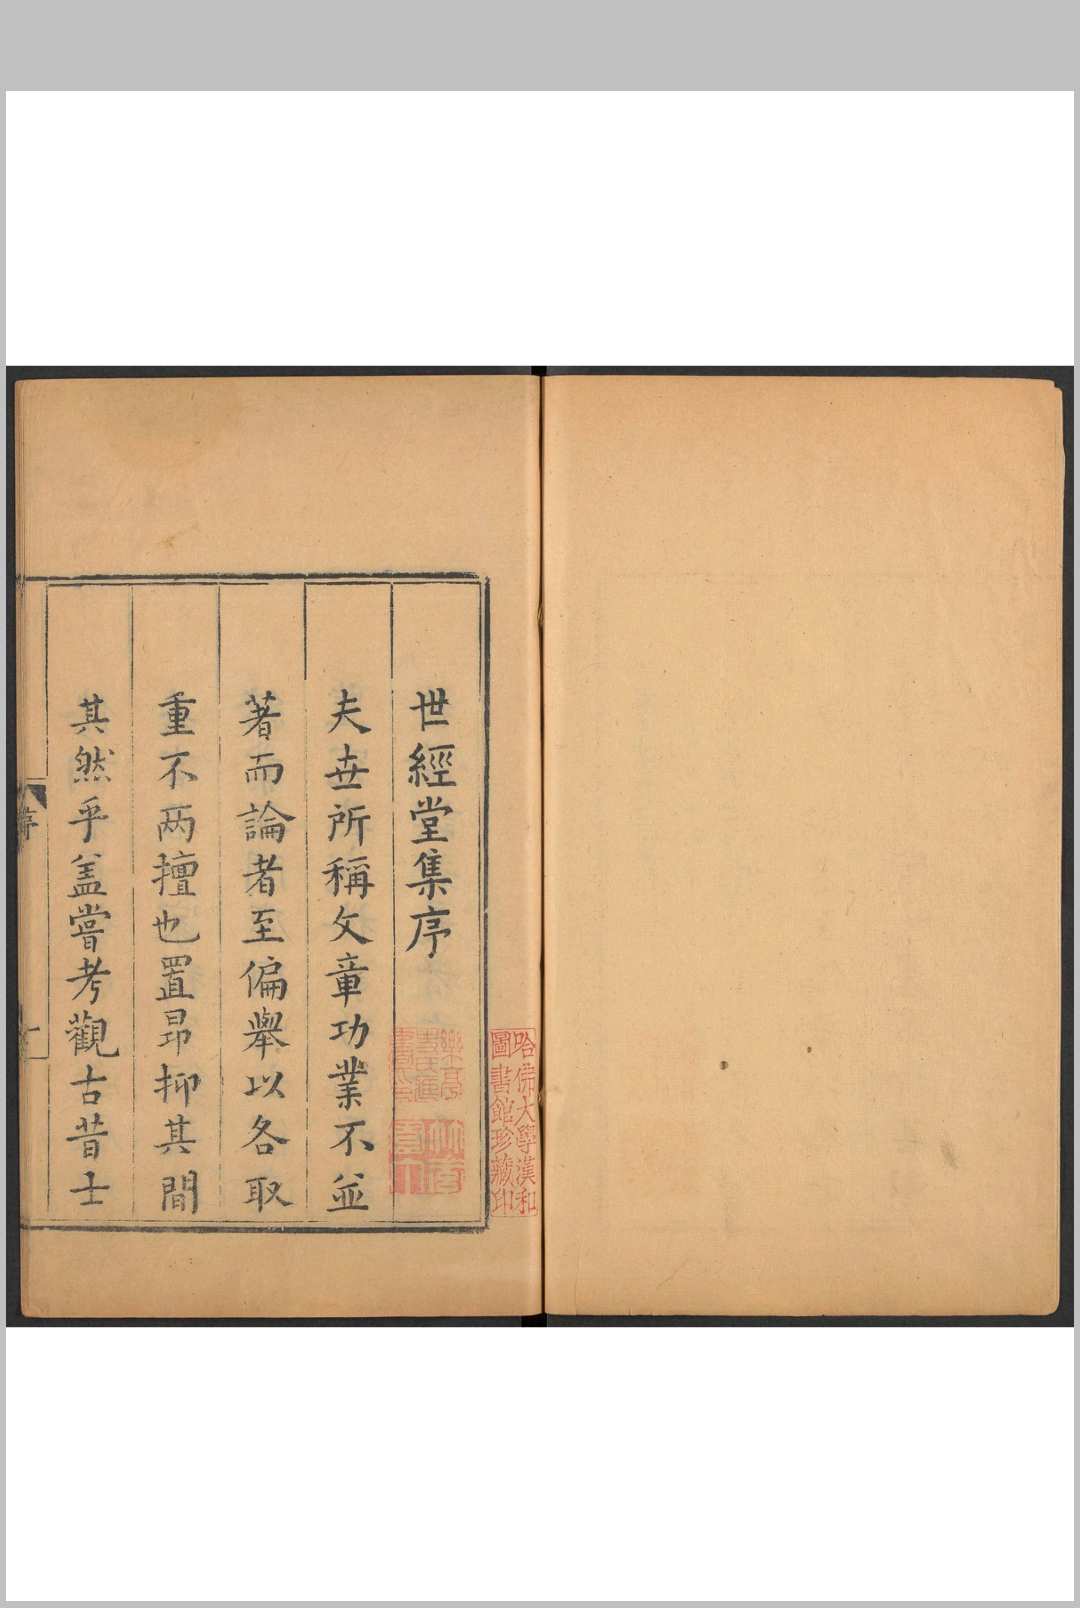 世經堂集序
夫世所稱文章功業不並
著而論者至偏舉以各取
重不两擅也置昂抑其間
其然乎盖嘗考觀古昔士
序
哈佛大學漢和
圖書館珍藏印